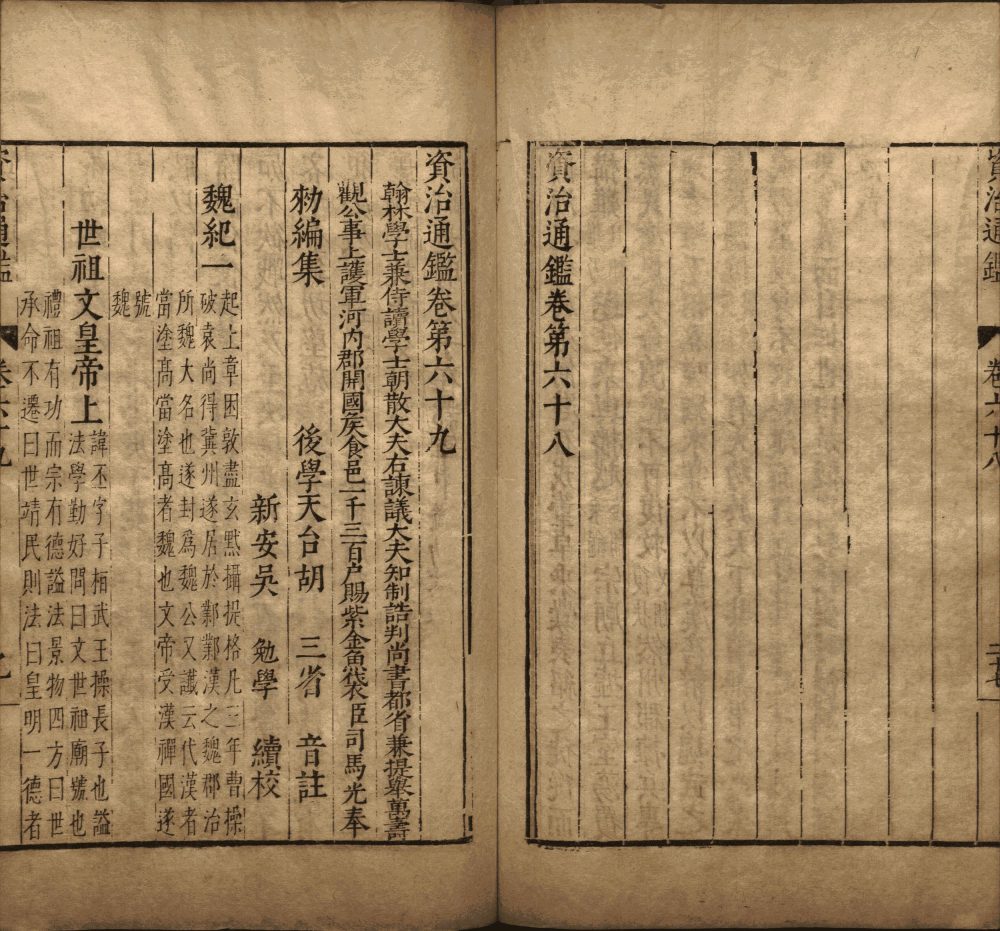 資治通鑑 卷六十八
資治通鑑卷第六十八
資治通鑑卷第六十九
翰林學士兼侍讀學士朝散大夫右諫議大夫知制誥判尚書都省兼提舉萬壽
觀公事上護軍河內郡開國侯食邑一千三百户賜紫金魚袋臣司馬光奉
勑編集 後學天台胡 三省 音註
新安吳 勉學 續校
魏紀一 起上章困敦盡玄黓攝提格凡三年曹操
破袁尚得冀州遂居於鄴鄴漢之魏郡治
所魏大名也遂封爲魏公又讖云代漢者
當塗髙當塗髙者魏也文帝受漢禪國遂
號
魏
世祖文皇帝上 諱丕字子桓武王操長子也諡
法學勤好問曰文世祖廟號也
禮祖有功而宗有德諡法景物四方曰世
承命不遷曰世靖民則法曰皇明一德者
資治通鑑 卷六十九